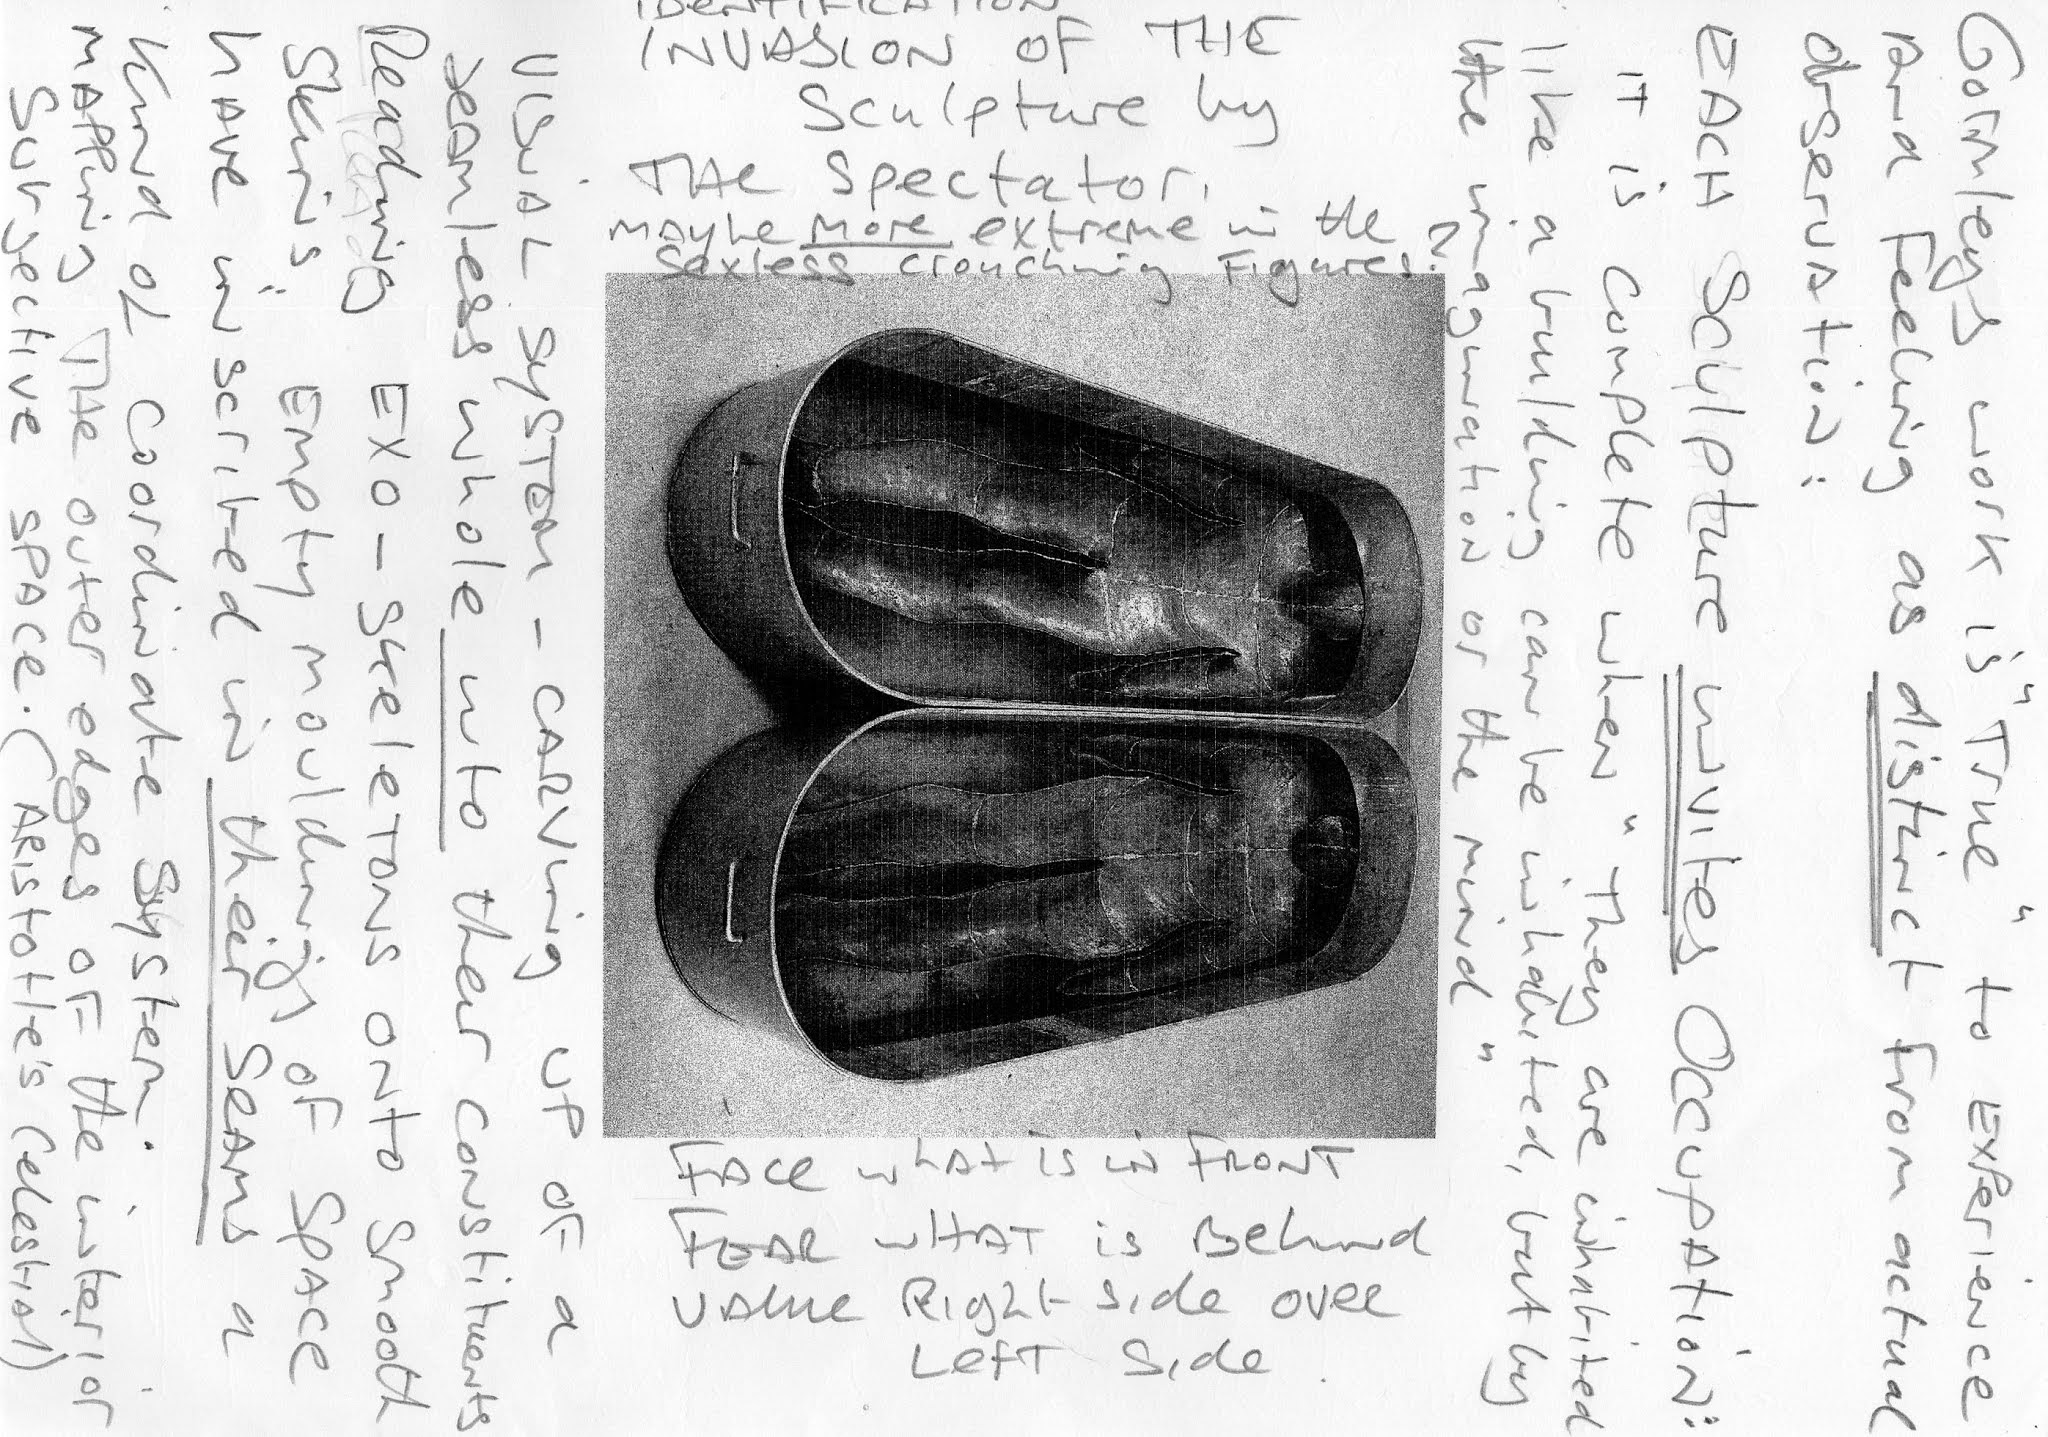 Gormleys work is "True" to EXPERIENCE
and Feeling as distinct From actual
observation:
EACH Sculpture invites OccupAtion:
IT is complete when "They are inhabited
like a building can be inhabited, but by
the imagination or the mind"
IDENTIFICATION
INVASION OF THE
Sculpture by
THE Spectator.
maybe more extreme in the
sexless crouching Figures?
FACE whAT is in FRONT
FEAR WHAT is Behind
VALUE Right side over
Left Side.
VISUAL SYSTEM - CARVING UP OF a
seamless whole into their constituents
Reading EXO-SKELETONS onto Smooth
Skins; Empty mouldings of SPACE
HAVE inscribed in their SEAMS a
Kind of coordinate System.
MAPPING The outer edges OF the interior
Subjective SPACE. (ARISTOTLE'S Celestial)